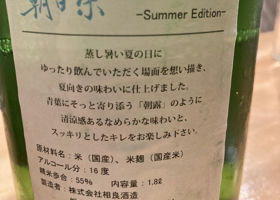 朝日榮
-Summer Edition-
蒸し暑い夏の日に
ゆったり飲んでいただく場面を想い描き、
夏向きの味わいに仕上げました。
青葉にそっと寄り添う「朝露」のように
清涼感あるなめらかな味わいと、
スッキリとしたキレをお楽しみ下さい。
原材料名:米(国産)、米麹(国産米)
アルコール分:16度
精米歩合:55% 内容量:1.8ℓ
製造者:株式会社相良酒造